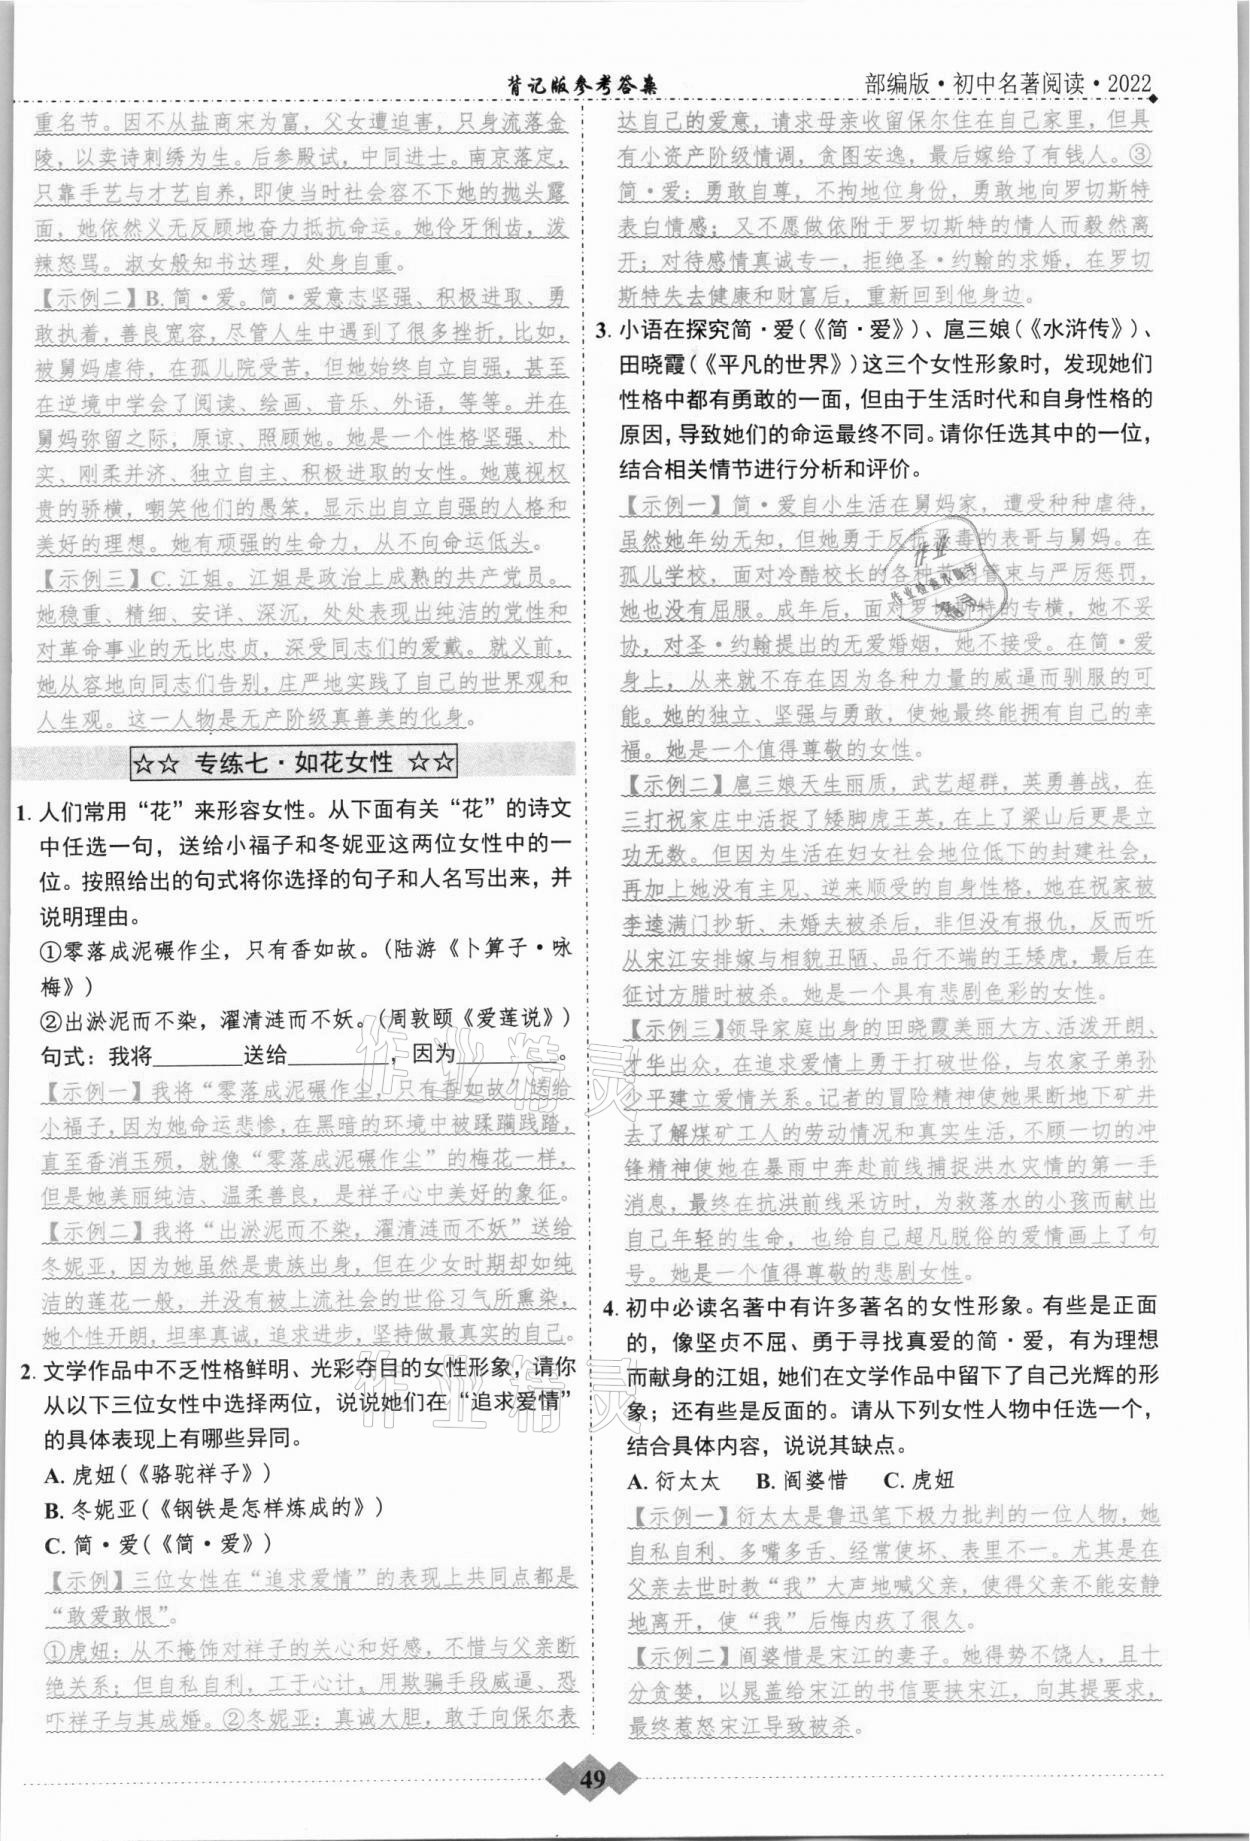 背记版参考答案
部编版·初中名著阅读·2022
重名节。因不从盐商宋为富，父女遭迫害，只身流落金
陵，以卖诗刺绣为生。后参殿试，中同进士。南京落定，
只靠手艺与才艺自养，即使当时社会容不下她的抛头露
面，她依然义无反顾地奋力抵抗命运。她伶牙俐齿，泼
辣怒骂。淑女般知书达理，处身自重。
【示例二】B. 简·爱。简·爱意志坚强、积极进取、勇
敢执着，善良宽容，尽管人生中遇到了很多挫折，比如，
被舅妈虐待，在孤儿院受苦，但她始终自立自强，甚至
在逆境中学会了阅读、绘画、音乐、外语，等等。并在
舅妈弥留之际，原谅、照顾她。她是一个性格坚强、朴
实、刚柔并济、独立自主、积极进取的女性。她蔑视权
贵的骄横，嘲笑他们的愚笨，显示出自立自强的人格和
美好的理想。她有顽强的生命力，从不向命运低头。
【示例三】C. 江姐。江姐是政治上成熟的共产党员。
她稳重、精细、安详、深沉，处处表现出纯洁的党性和
对革命事业的无比忠贞，深受同志们的爱戴。就义前，
她从容地向同志们告别，庄严地实践了自己的世界观和
人生观。这一人物是无产阶级真善美的化身。
☆☆ 专练七·如花女性 ☆☆
1. 人们常用“花”来形容女性。从下面有关“花”的诗文
中任选一句，送给小福子和冬妮亚这两位女性中的一
位。按照给出的句式将你选择的句子和人名写出来，并
说明理由。
①零落成泥碾作尘，只有香如故。(陆游《卜算子·咏
梅》)
②出淤泥而不染，濯清涟而不妖。(周敦颐《爱莲说》)
句式：我将________送给________，因为________。
【示例一】我将“零落成泥碾作尘，只有香如故”送给
小福子，因为她命运悲惨，在黑暗的环境中被蹂躏践踏，
直至香消玉殒，就像“零落成泥碾作尘”的梅花一样，
但是她美丽纯洁、温柔善良，是祥子心中美好的象征。
【示例二】我将“出淤泥而不染，濯清涟而不妖”送给
冬妮亚，因为她虽然是贵族出身，但在少女时期却如纯
洁的莲花一般，并没有被上流社会的世俗习气所熏染，
她个性开朗，坦率真诚，追求进步，坚持做最真实的自己。
2. 文学作品中不乏性格鲜明、光彩夺目的女性形象，请你
从以下三位女性中选择两位，说说她们在“追求爱情”
的具体表现上有哪些异同。
A. 虎妞(《骆驼祥子》)
B. 冬妮亚(《钢铁是怎样炼成的》)
C. 简·爱(《简·爱》)
【示例】三位女性在“追求爱情”的表现上共同点都是
“敢爱敢恨”。
①虎妞：从不掩饰对祥子的关心和好感，不惜与父亲断
绝关系；但自私自利，工于心计，用欺骗手段威逼、恐
吓祥子与其成婚。②冬妮亚：真诚大胆，敢于向保尔表
达自己的爱意，请求母亲收留保尔住在自己家里，但具
有小资产阶级情调，贪图安逸，最后嫁给了有钱人。③
简·爱：勇敢自尊，不拘地位身份，勇敢地向罗切斯特
表白情感；又不愿做依附于罗切斯特的情人而毅然离
开；对待感情真诚专一，拒绝圣·约翰的求婚，在罗切
斯特失去健康和财富后，重新回到他身边。
3. 小语在探究简·爱(《简·爱》)、扈三娘(《水浒传》)、
田晓霞(《平凡的世界》)这三个女性形象时，发现她们
性格中都有勇敢的一面，但由于生活时代和自身性格的
原因，导致她们的命运最终不同。请你任选其中的一位，
结合相关情节进行分析和评价。
【示例一】简·爱自小生活在舅妈家，遭受种种虐待，
虽然她年幼无知，但她勇于反抗恶毒的表哥与舅妈。在
孤儿学校，面对冷酷校长的各种苛刻管束与严厉惩罚，
她也没有屈服。成年后，面对罗切斯特的专横，她不妥
协，对圣·约翰提出的无爱婚姻，她不接受。在简·爱
身上，从来就不存在因为各种力量的威逼而驯服的可
能。她的独立、坚强与勇敢，使她最终能拥有自己的幸
福。她是一个值得尊敬的女性。
【示例二】扈三娘天生丽质，武艺超群，英勇善战，在
三打祝家庄中活捉了矮脚虎王英，在上了梁山后更是立
功无数。但因为生活在妇女社会地位低下的封建社会，
再加上她没有主见、逆来顺受的自身性格，她在祝家被
李逵满门抄斩、未婚夫被杀后，非但没有报仇，反而听
从宋江安排嫁与相貌丑陋、品行不端的王矮虎，最后在
征讨方腊时被杀。她是一个具有悲剧色彩的女性。
【示例三】领导家庭出身的田晓霞美丽大方、活泼开朗、
才华出众，在追求爱情上勇于打破世俗，与农家子弟孙
少平建立爱情关系。记者的冒险精神使她果断地下矿井
去了解煤矿工人的劳动情况和真实生活，不顾一切的冲
锋精神使她在暴雨中奔赴前线捕捉洪水灾情的第一手
消息，最终在抗洪前线采访时，为救落水的小孩而献出
自己年轻的生命，也给自己超凡脱俗的爱情画上了句
号。她是一个值得尊敬的悲剧女性。
4. 初中必读名著中有许多著名的女性形象。有些是正面
的，像坚贞不屈、勇于寻找真爱的简·爱，有为理想
而献身的江姐，她们在文学作品中留下了自己光辉的形
象；还有些是反面的。请从下列女性人物中任选一个，
结合具体内容，说说其缺点。
A. 衍太太 B. 阎婆惜 C. 虎妞
【示例一】衍太太是鲁迅笔下极力批判的一位人物，她
自私自利、多嘴多舌、经常使坏、表里不一。尤其是在
父亲去世时教“我”大声地喊父亲，使得父亲不能安静
地离开，使“我”后悔内疚了很久。
【示例二】阎婆惜是宋江的妻子。她得势不饶人，且十
分贪婪，以晁盖给宋江的书信要挟宋江，向其提要求，
最终惹怒宋江导致被杀。
49
作业精灵
作业精灵